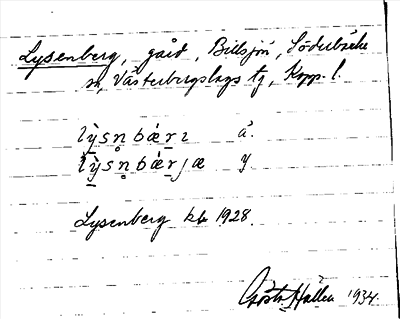 Lysenberg, gård, Billsjön, Söderbärke
sn, Västerbergslags tg, Kopp. l.
lỳsn̥bæ̀rı å.
lỳsn̥bæ̀rjæ y.
Lysenberg kbr 1928.
Gösta Hallen 1934.